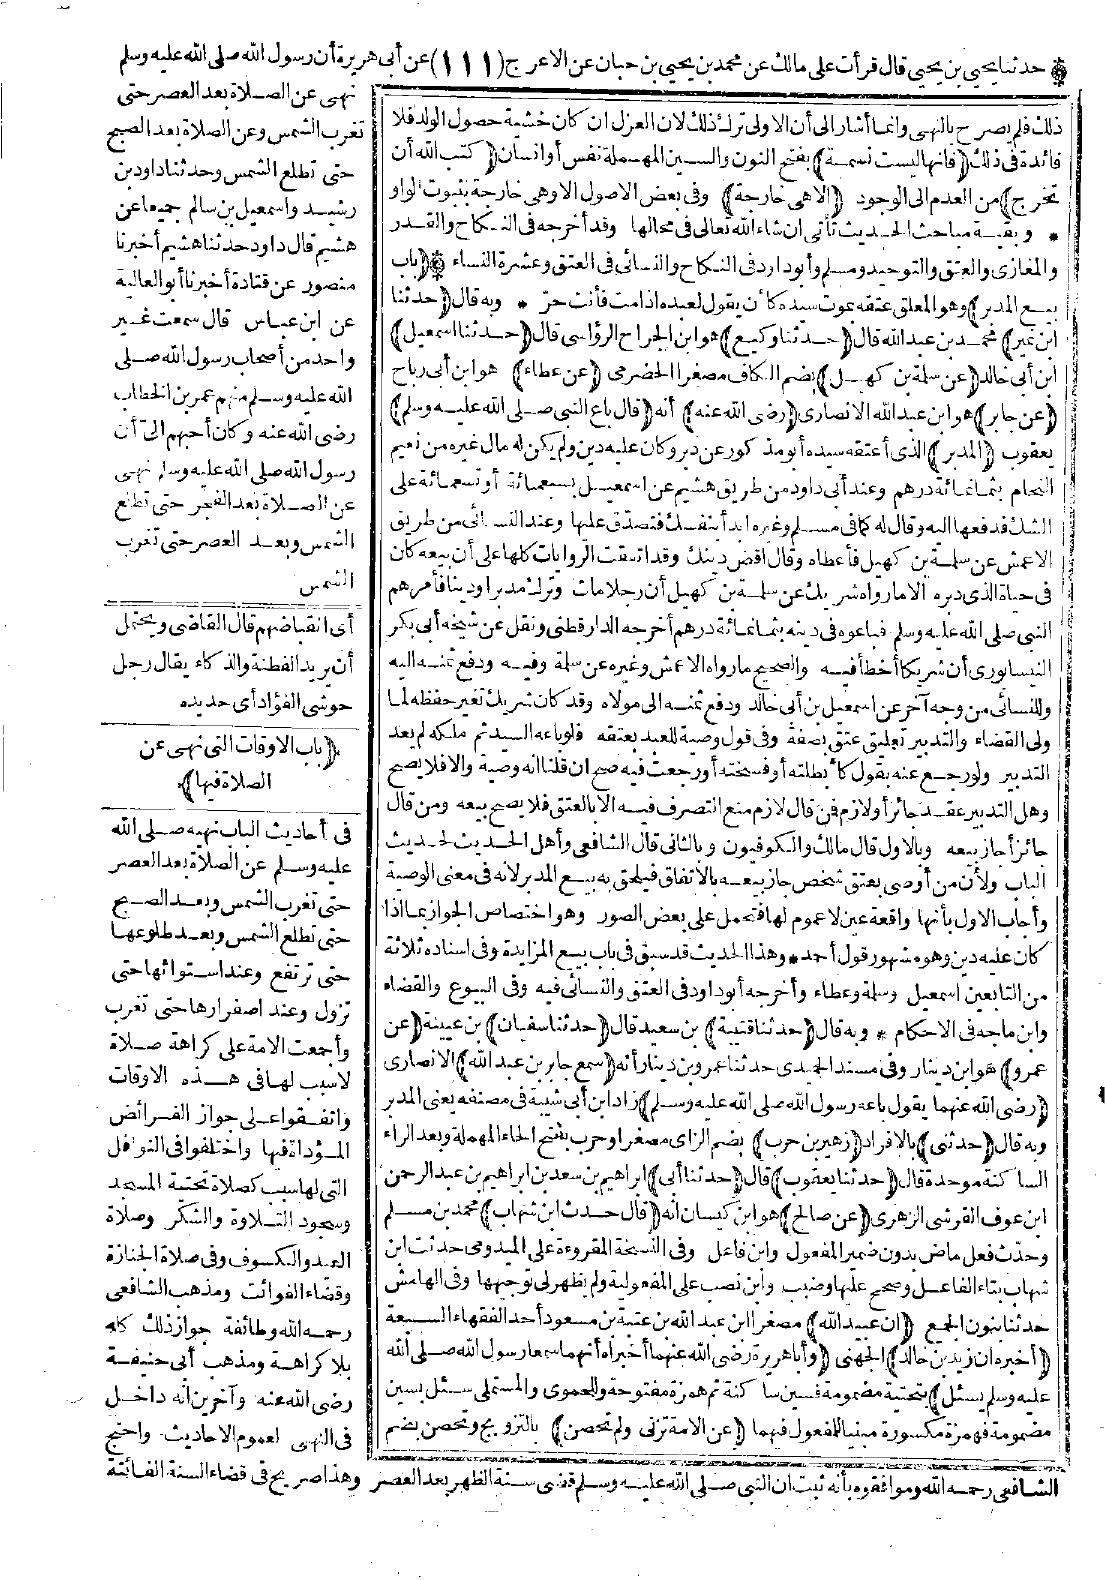 حدثنا يحيى بن يحيى قال قرأت على مالك عن محمد بن يحيى بن حبان عن الاعرج (١١١) عن أبى هريرة أن رسول الله صلى الله عليه وسلم
نهى عن الصلاة بعد العصر حتى
تغرب الشمس وعن الصلاة بعد الصبح
حتى تطلع الشمس وحدثنا داود بن
رشيد واسمعيل بن سالم جميعا عن
هشيم قال داود حدثنا هشيم أخبرنا
منصور عن قتادة أخبرنا أبو العالية
عن ابن عباس قال سمعت غير
واحد من أصحاب رسول الله صلى
الله عليه وسلم منهم عمر بن الخطاب
رضى الله عنه وكان أحبهم الىّ أن
رسول الله صلى الله عليه وسلم نهى
عن الصلاة بعد الفجر حتى تطلع
الشمس وبعد العصر حتى تغرب
الشمس
أى انقباضهم قال القاضى ويحتمل
أن يريد الفطنة والذكاء يقال رجل
حوشى الفؤاد أى حديده
(باب الاوقات التى نهى عن
الصلاة فيها)
فى أحاديث الباب نهيه صلى الله
عليه وسلم عن الصلاة بعد العصر
حتى تغرب الشمس وبعد الصبح
حتى تطلع الشمس وبعد طلوعها
حتى ترتفع وعند استوائها حتى
تزول وعند اصفرارها حتى تغرب
وأجمعت الامة على كراهة صلاة
لاسبب لها فى هذه الاوقات
واتفقوا على جواز الفرائض
المؤداة فيها واختلفوا فى النوافل
التى لها سبب كصلاة تحية المسجد
وسجود التلاوة والشكر وصلاة
العيد والكسوف وفى صلاة الجنازة
وقضاء الفوائت ومذهب الشافعى
رحمه الله وطائفة جواز ذلك كله
بلا كراهة ومذهب أبى حنيفة
رضى الله عنه وآخرين أنه داخل
فى النهى لعموم الاحاديث واحتج
ذلك فلم يصرح بالنهى وانما أشار الى أن الاولى ترك ذلك لان العزل ان كان خشية حصول الولد فلا
فائدة فى ذلك (فانها ليست نسمة) بفتح النون والسين المهملة نفس أو انسان (كتب الله أن
تخرج) من العدم الى الوجود (الا هى خارجة) وفى بعض الاصول الا وهى خارجة بثبوت الواو
* وبقية مباحث الحديث تأتى ان شاء الله تعالى فى محالها وقد أخرجه فى النكاح والقدر
والمغازى والعتق والتوحيد ومسلم وأبو داود فى النكاح والنسائى فى العتق وعشرة النساء (باب
بيع المدبر) وهو المعلق عتقه بموت سيده كأن يقول لعبده اذا مت فأنت حرّ * وبه قال (حدثنا
ابن نمير) محمد بن عبد الله قال (حدثنا وكيع) هو ابن الجراح الرؤاسى قال (حدثنا اسمعيل)
ابن أبى خالد (عن سلمة بن كهيل) بضم الكاف مصغرا الحضرمى (عن عطاء) هو ابن أبى رباح
(عن جابر) هو ابن عبد الله الانصارى (رضى الله عنه) أنه (قال باع النبى صلى الله عليه وسلم)
يعقوب (المدبر) الذى أعتقه سيده أبو مذكور عن دبر وكان عليه دين ولم يكن له مال غيره من نعيم
النحام بثمانمائة درهم وعند أبى داود من طريق هشيم عن اسمعيل بسبعمائة أو تسعمائة على
الشك فدفعها اليه وقال له كما فى مسلم وغيره ابدأ بنفسك فتصدّق عليها وعند النسائى من طريق
الاعمش عن سلمة بن كهيل فأعطاه وقال اقض دينك وقد اتفقت الروايات كلها على أن بيعه كان
فى حياة الذى دبره الا ما رواه شريك عن سلمة بن كهيل أن رجلا مات وترك مدبرا ودينا فأمرهم
النبى صلى الله عليه وسلم فباعوه فى دينه بثمانمائة درهم أخرجه الدارقطنى ونقل عن شيخه أبى بكر
النيسابورى أن شريكا أخطأ فيه والصحيح ما رواه الاعمش وغيره عن سلمة وفيه ودفع ثمنه اليه
وللنسائى من وجه آخر عن اسمعيل بن أبى خالد ودفع ثمنه الى مولاه وقد كان شريك تغير حفظه لما
ولى القضاء والتدبير تعليق عتق بصفة وفى قول وصية للعبد بعتقه فلو باعه السيد ثم ملكه لم يعد
التدبير ولو رجع عنه بقول كأبطلته أو فسخته أو رجعت فيه صح ان قلنا انه وصية والا فلا يصح
وهل التدبير عقد جائز أو لازم فمن قال لازم منع التصرف فيه الا بالعتق فلا يصح بيعه ومن قال
جائز أجاز بيعه وبالاول قال مالك والكوفيون وبالثانى قال الشافعى وأهل الحديث لحديث
الباب ولأن من أوصى بعتق شخص جاز بيعه بالاتفاق فيلحق به بيع المدبر لانه فى معنى الوصية
وأجاب الاول بأنها واقعة عين لا عموم لها فتحمل على بعض الصور وهو اختصاص الجواز بما اذا
كان عليه دين وهو مشهور قول أحمد * وهذا الحديث قد سبق فى باب بيع المزايدة وفى اسناده ثلاثة
من التابعين اسمعيل وسلمة وعطاء وأخرجه أبو داود فى العتق والنسائى فيه وفى البيوع والقضاء
وابن ماجه فى الاحكام * وبه قال (حدثنا قتيبة) بن سعيد قال (حدثنا سفيان) بن عيينة (عن
عمرو) هو ابن دينار وفى مسند الحميدى حدثنا عمرو بن دينار أنه (سمع جابر بن عبد الله) الانصارى
(رضى الله عنهما يقول باعه رسول الله صلى الله عليه وسلم) زاد ابن أبى شيبة فى مصنفه يعنى المدبر
وبه قال (حدثنى) بالافراد (زهير بن حرب) بضم الزاى مصغرا وحرب بفتح الحاء المهملة وبعد الراء
الساكنة موحدة قال (حدثنا يعقوب) قال (حدثنا أبى) ابراهيم بن سعد بن ابراهيم بن عبد الرحمن
ابن عوف القرشى الزهرى (عن صالح) هو ابن كيسان أنه (قال حدث ابن شهاب) محمد بن مسلم
وحدّث فعل ماض بدون ضمير المفعول وابن فاعل وفى النسخة المقروءة على الميدومى حدثت ابن
شهاب بتاء الفاعل وصحح عليها وضبب وابن نصب على المفعولية ولم يظهر لى توجيهها وفى الهامش
حدثنا بنون الجمع (ان عبيد الله) مصغرا ابن عبد الله بن عتبة بن مسعود أحد الفقهاء السبعة
(أخبره ان زيد بن خالد) الجهنى (وأبا هريرة رضى الله عنهما أخبراه أنهما سمعا رسول الله صلى الله
عليه وسلم يسئل) بتحتية مضمومة فسين ساكنة ثم همزة مفتوحة وللحموى والمستملى سئل بسين
مضمومة فهمزة مكسورة مبنيا للمفعول فيهما (عن الامة تزنى ولم تحصن) بالتزويج وتحصن بضم
الشافعى رحمه الله وموافقوه بأنه ثبت ان النبى صلى الله عليه وسلم قضى سنة الظهر بعد العصر وهذا صريح فى قضاء السنة الفائتة